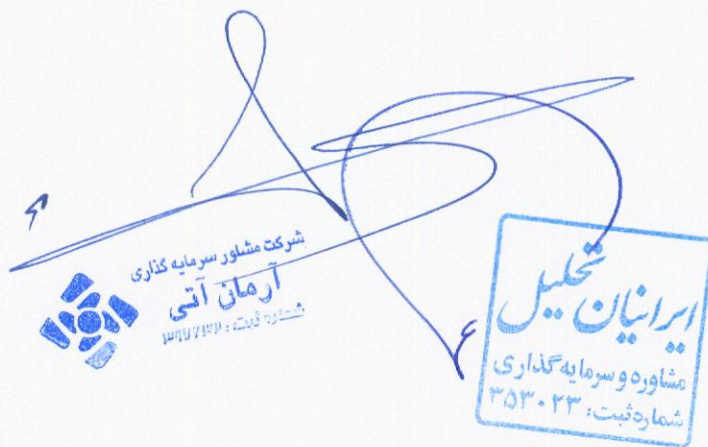 شرکت مشاور سرمایه گذاری
آرمان آتی
شماره ثبت:
ایرانیان تحلیل
مشاوره و سرمایه گذاری
شماره ثبت: ۳۵۳۰۲۳